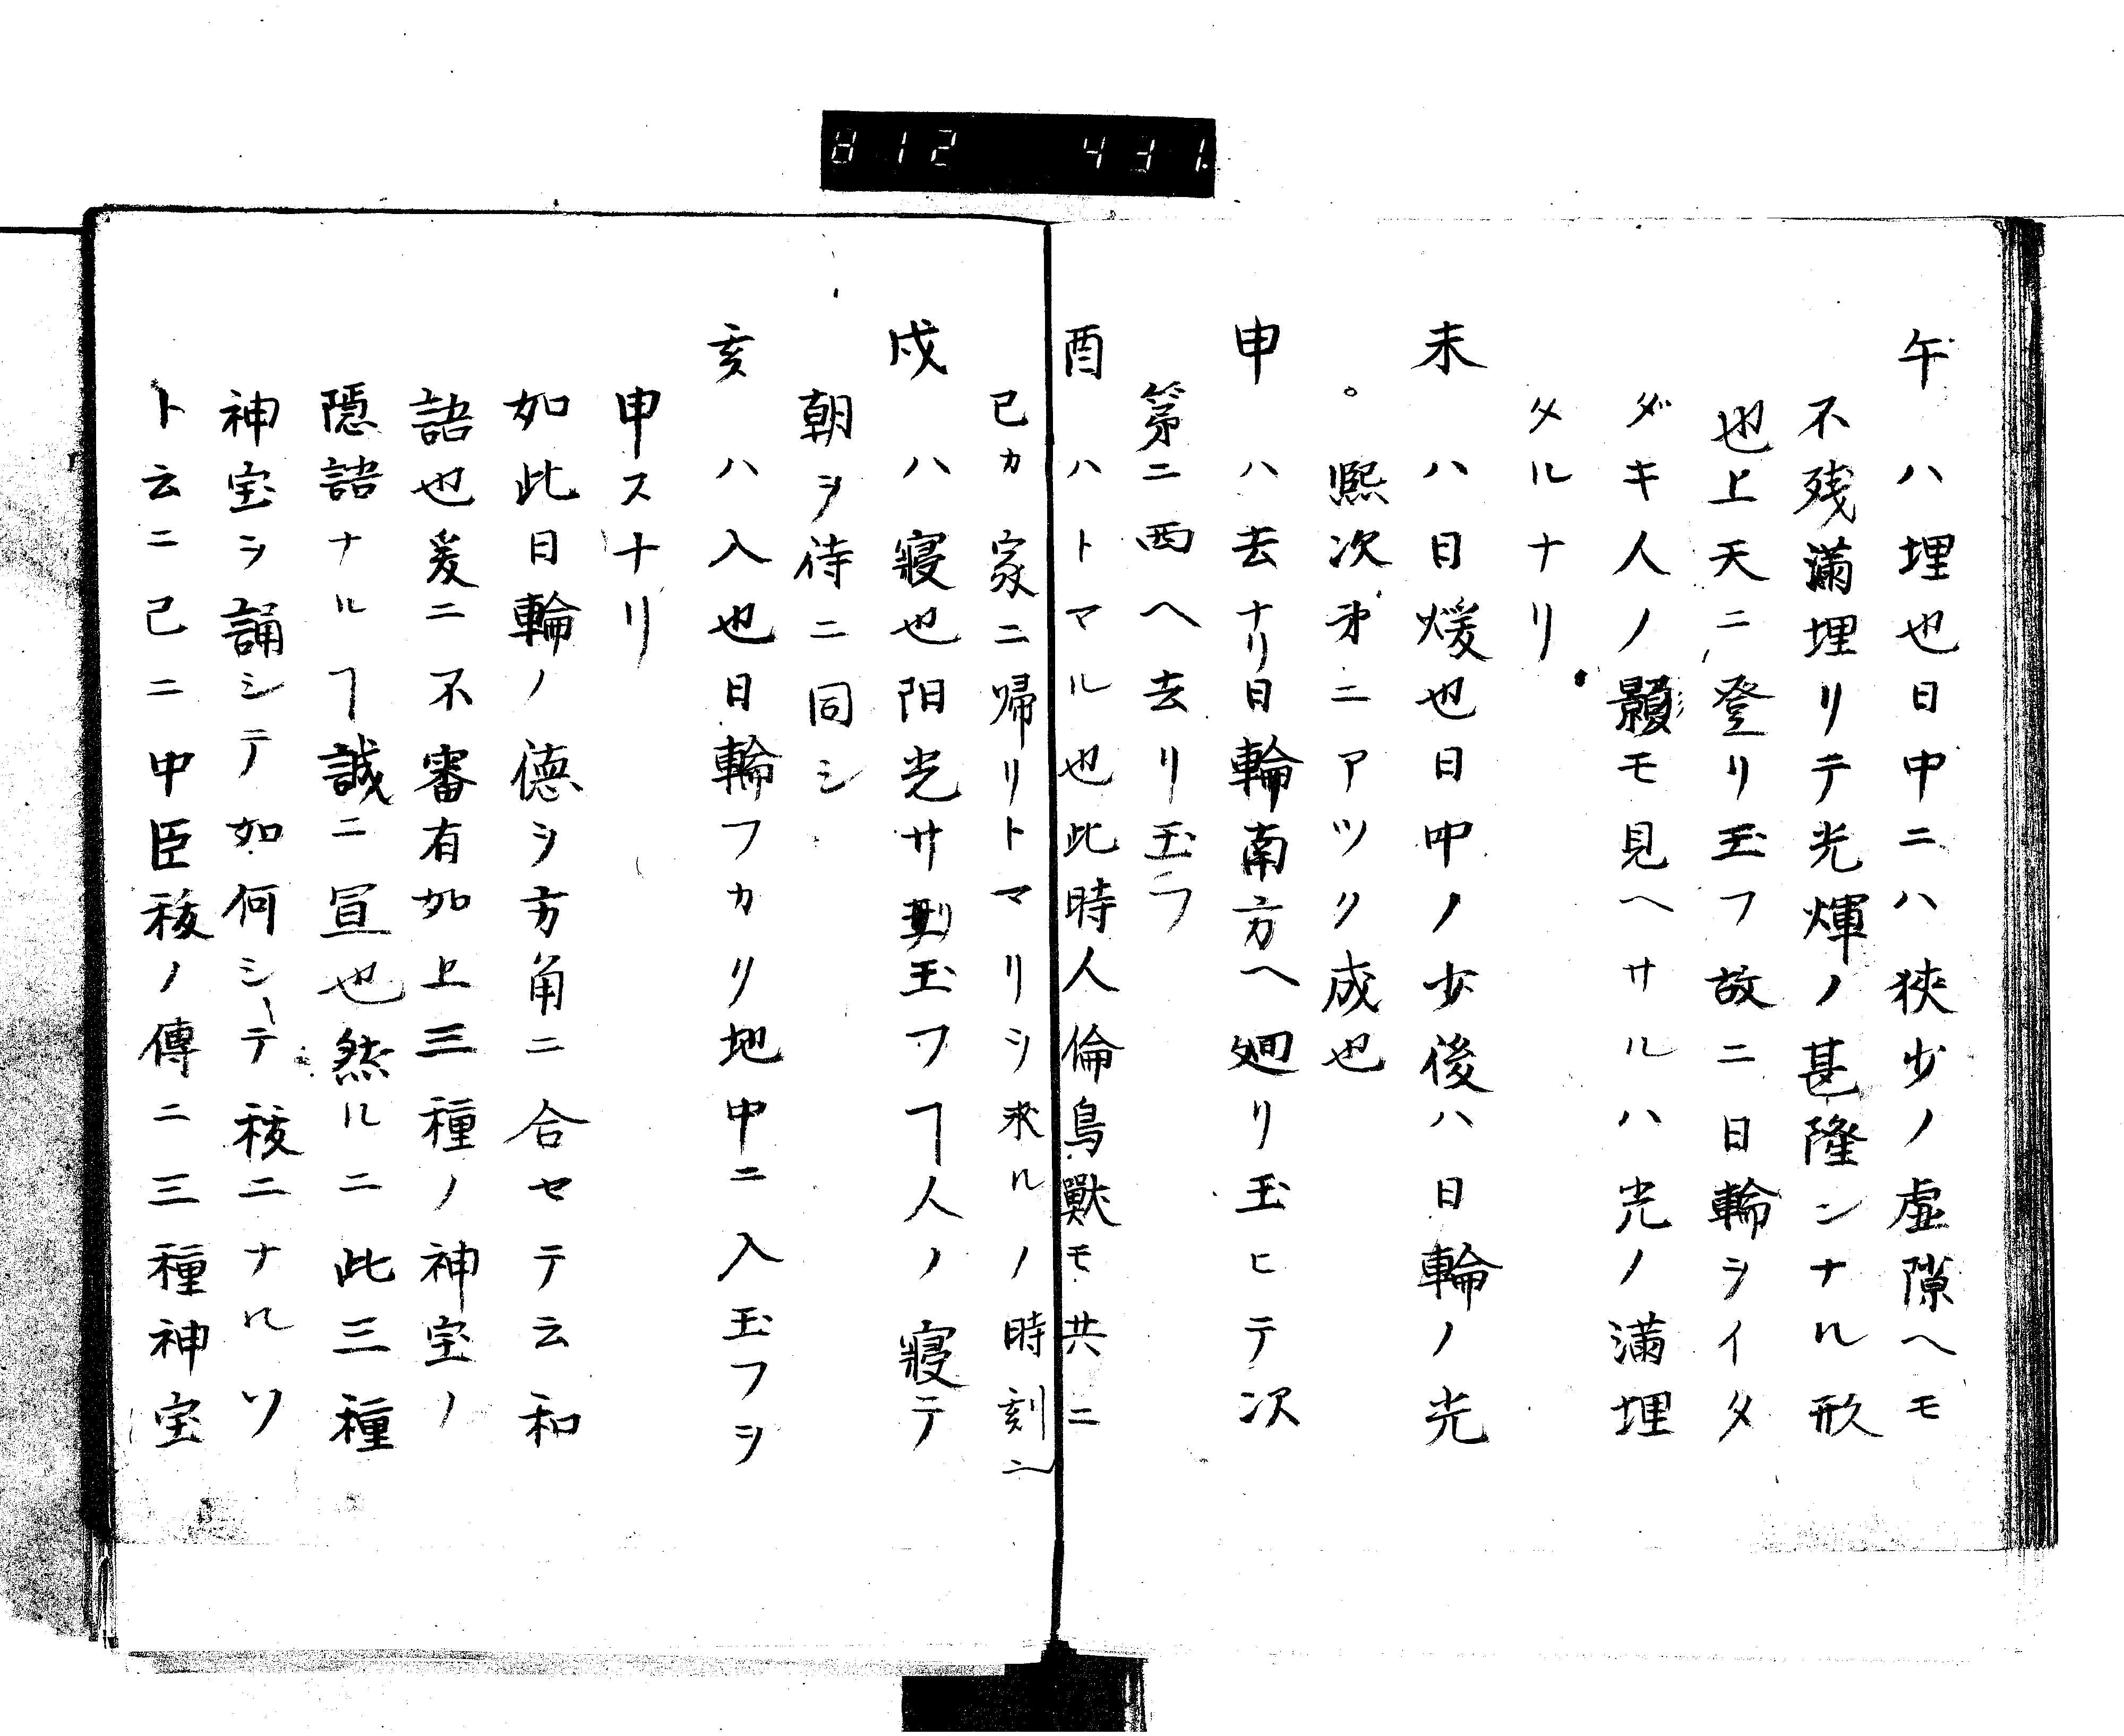 812 431.
午ハ埋也日中ニハ狹少ノ虚隙ヘモ
不残滿埋リテ光輝ノ甚隆ンナル形
也上天ニ登リ玉フ故ニ日輪ヲイタ
ダキ人ノ影モ見ヘサルハ光ノ滿埋
タルナリ
未ハ日煖也日中ノ少後ハ日輪ノ光
熈次㐧ニアツク成也
申ハ去ナリ日輪南方ヘ廻リ玉ヒテ次
第ニ西ヘ去リ玉フ
酉ハトマル也此時人倫鳥獸モ共ニ
已カ家ニ帰リトマリシ来ルノ時刻ニ
戌ハ寝也阳光サ玉フヿ人ノ寝テ
朝ヲ待ニ同シ
亥ハ入也日輪フカリ地中ニ入玉フヲ
申スナリ
如此日輪ノ德ヲ方角ニ合セテ云和
語也爰ニ不審有如上三種ノ神宝ノ
隠語ナルヿ誠ニ宣也然ルニ此三種
神宝ヲ誦シテ如何シテ秡ニナルソ
ト云ニ已ニ中臣秡ノ傳ニ三種神宝